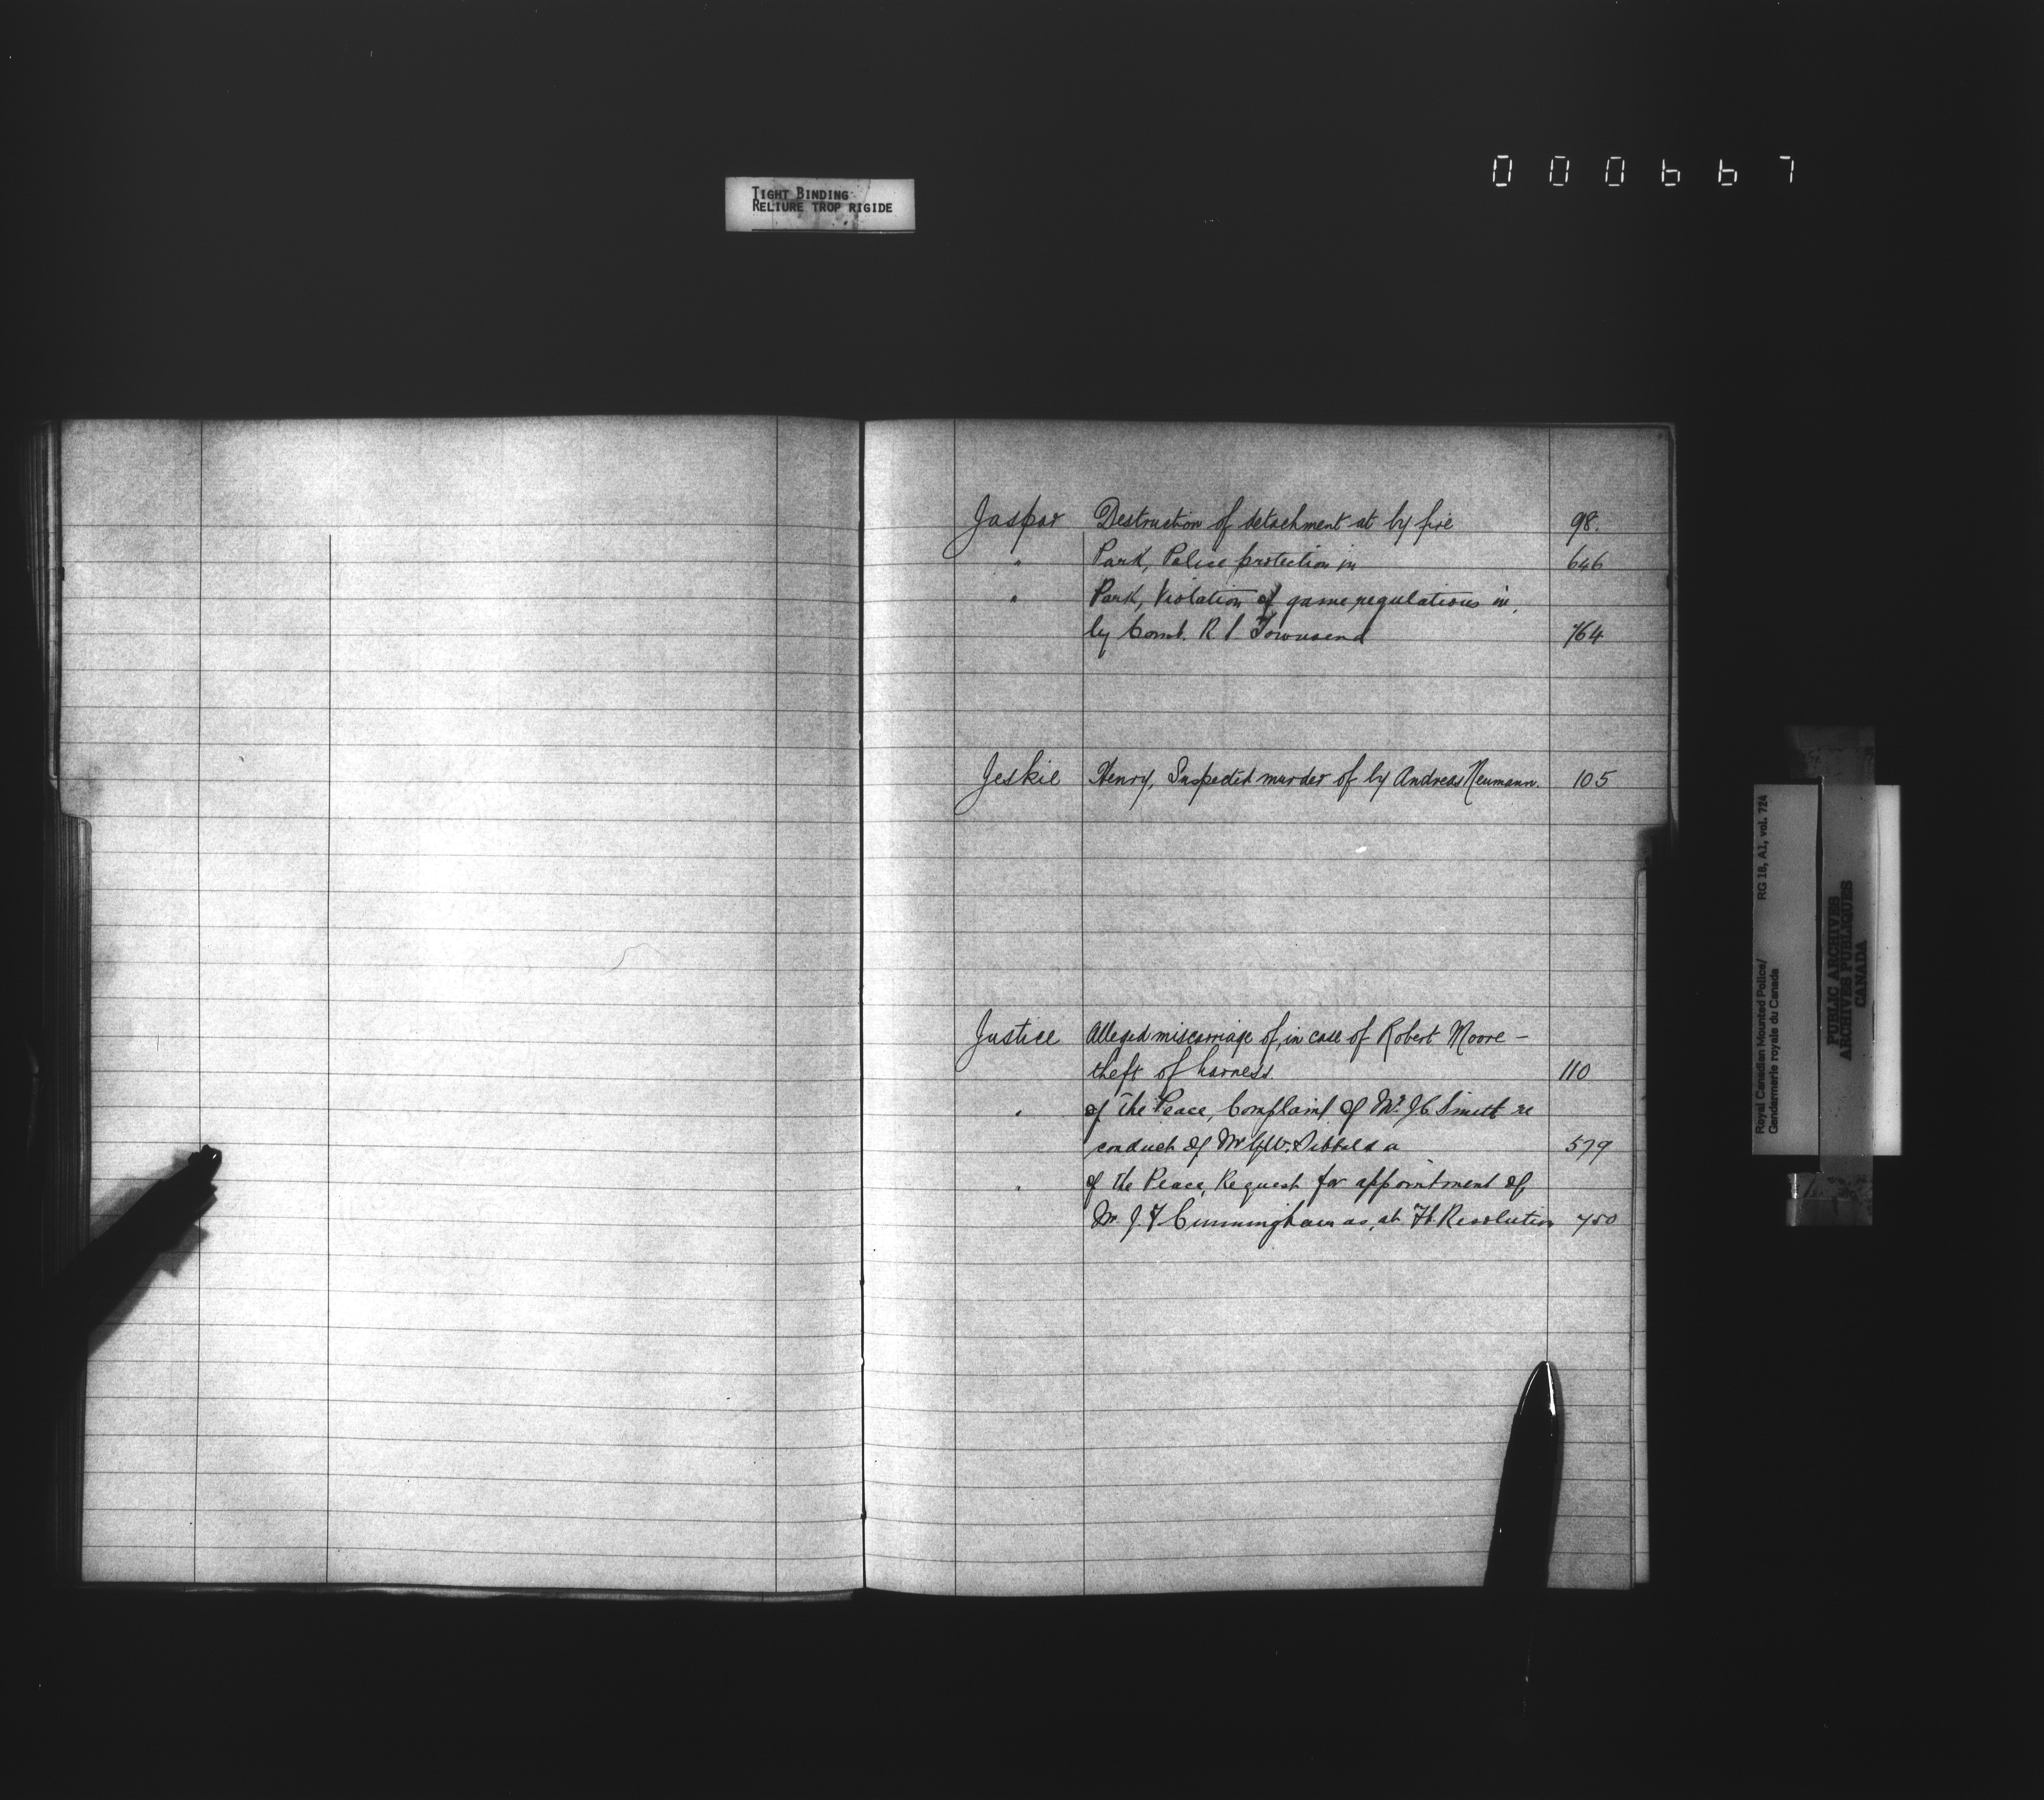 000667
TIGHT BINDING
RELIURE TROP RIGIDE
Jaspar Destruction of detachment at by fire 98.
" Park, Police protection in 646
" Park, Violation of game regulations in,
by Const. R Townsend 764
Jeskie Henry, Suspected murder of by Andreas Neumann. 105
Justice Alleged miscarriage of, in case of Robert Moore –
theft of harness. 110
" of the Peace, Complaint of Mr. J.C. Smith re
conduct of Mr Sibbald a 579
" of the Peace, Request for appointment of,
Mr. J F Cunningham as, at Ft. Resolution 750
Royal Canadian Mounted Police/
Gendarmerie royale du Canada
RG 18, A1, vol. 724
PUBLIC ARCHIVES
ARCHIVES PUBLIQUES
CANADA